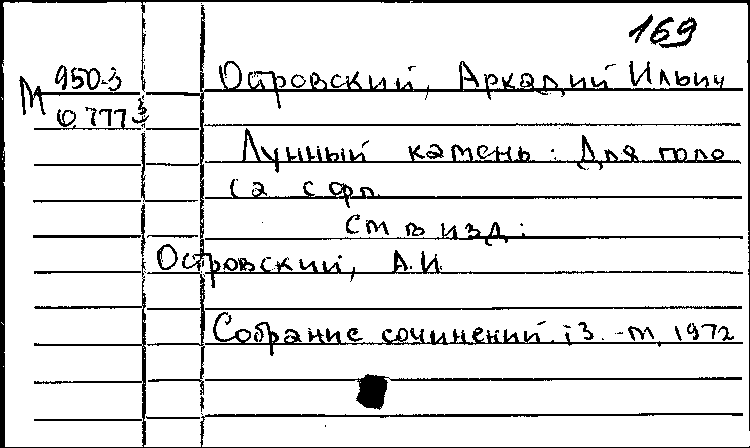 169
М 950-3
0.777 3
Островский, Аркадий Ильич
Лунный камень: Для голо
са с фп
См в изд:
Островский, А.И.
Собрание сочинений. т 3. -М, 1972